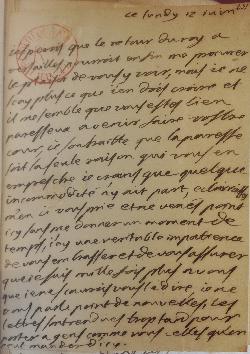 ce lundy 12 juin
iesperois que le retour du roy a
versailles pourroit enfin me procurer
le plaisir de vous y voir, mais ie ne
scay plus ce que ien dois croire et
il me semble que vous estes bien
paresseux a venir faire vostre
cour, ie souhaitte que la paresse
soit la seule raison qui vous en
empesche ie crains que quelque
incommodité ny ait part,
men ie vous prie et ne venés point
icy sans me donner un moment de
temps, iay une veritable impatience
de vous embrasser et de vous assurer
que ie suis mille fois plus a vous
que ie ne scaurois vous le dire, ie ne
vous parle point de nouvelles, les
lettres sont rendues trop tard pour
a gens comme vous celles qu'on
mander dicy